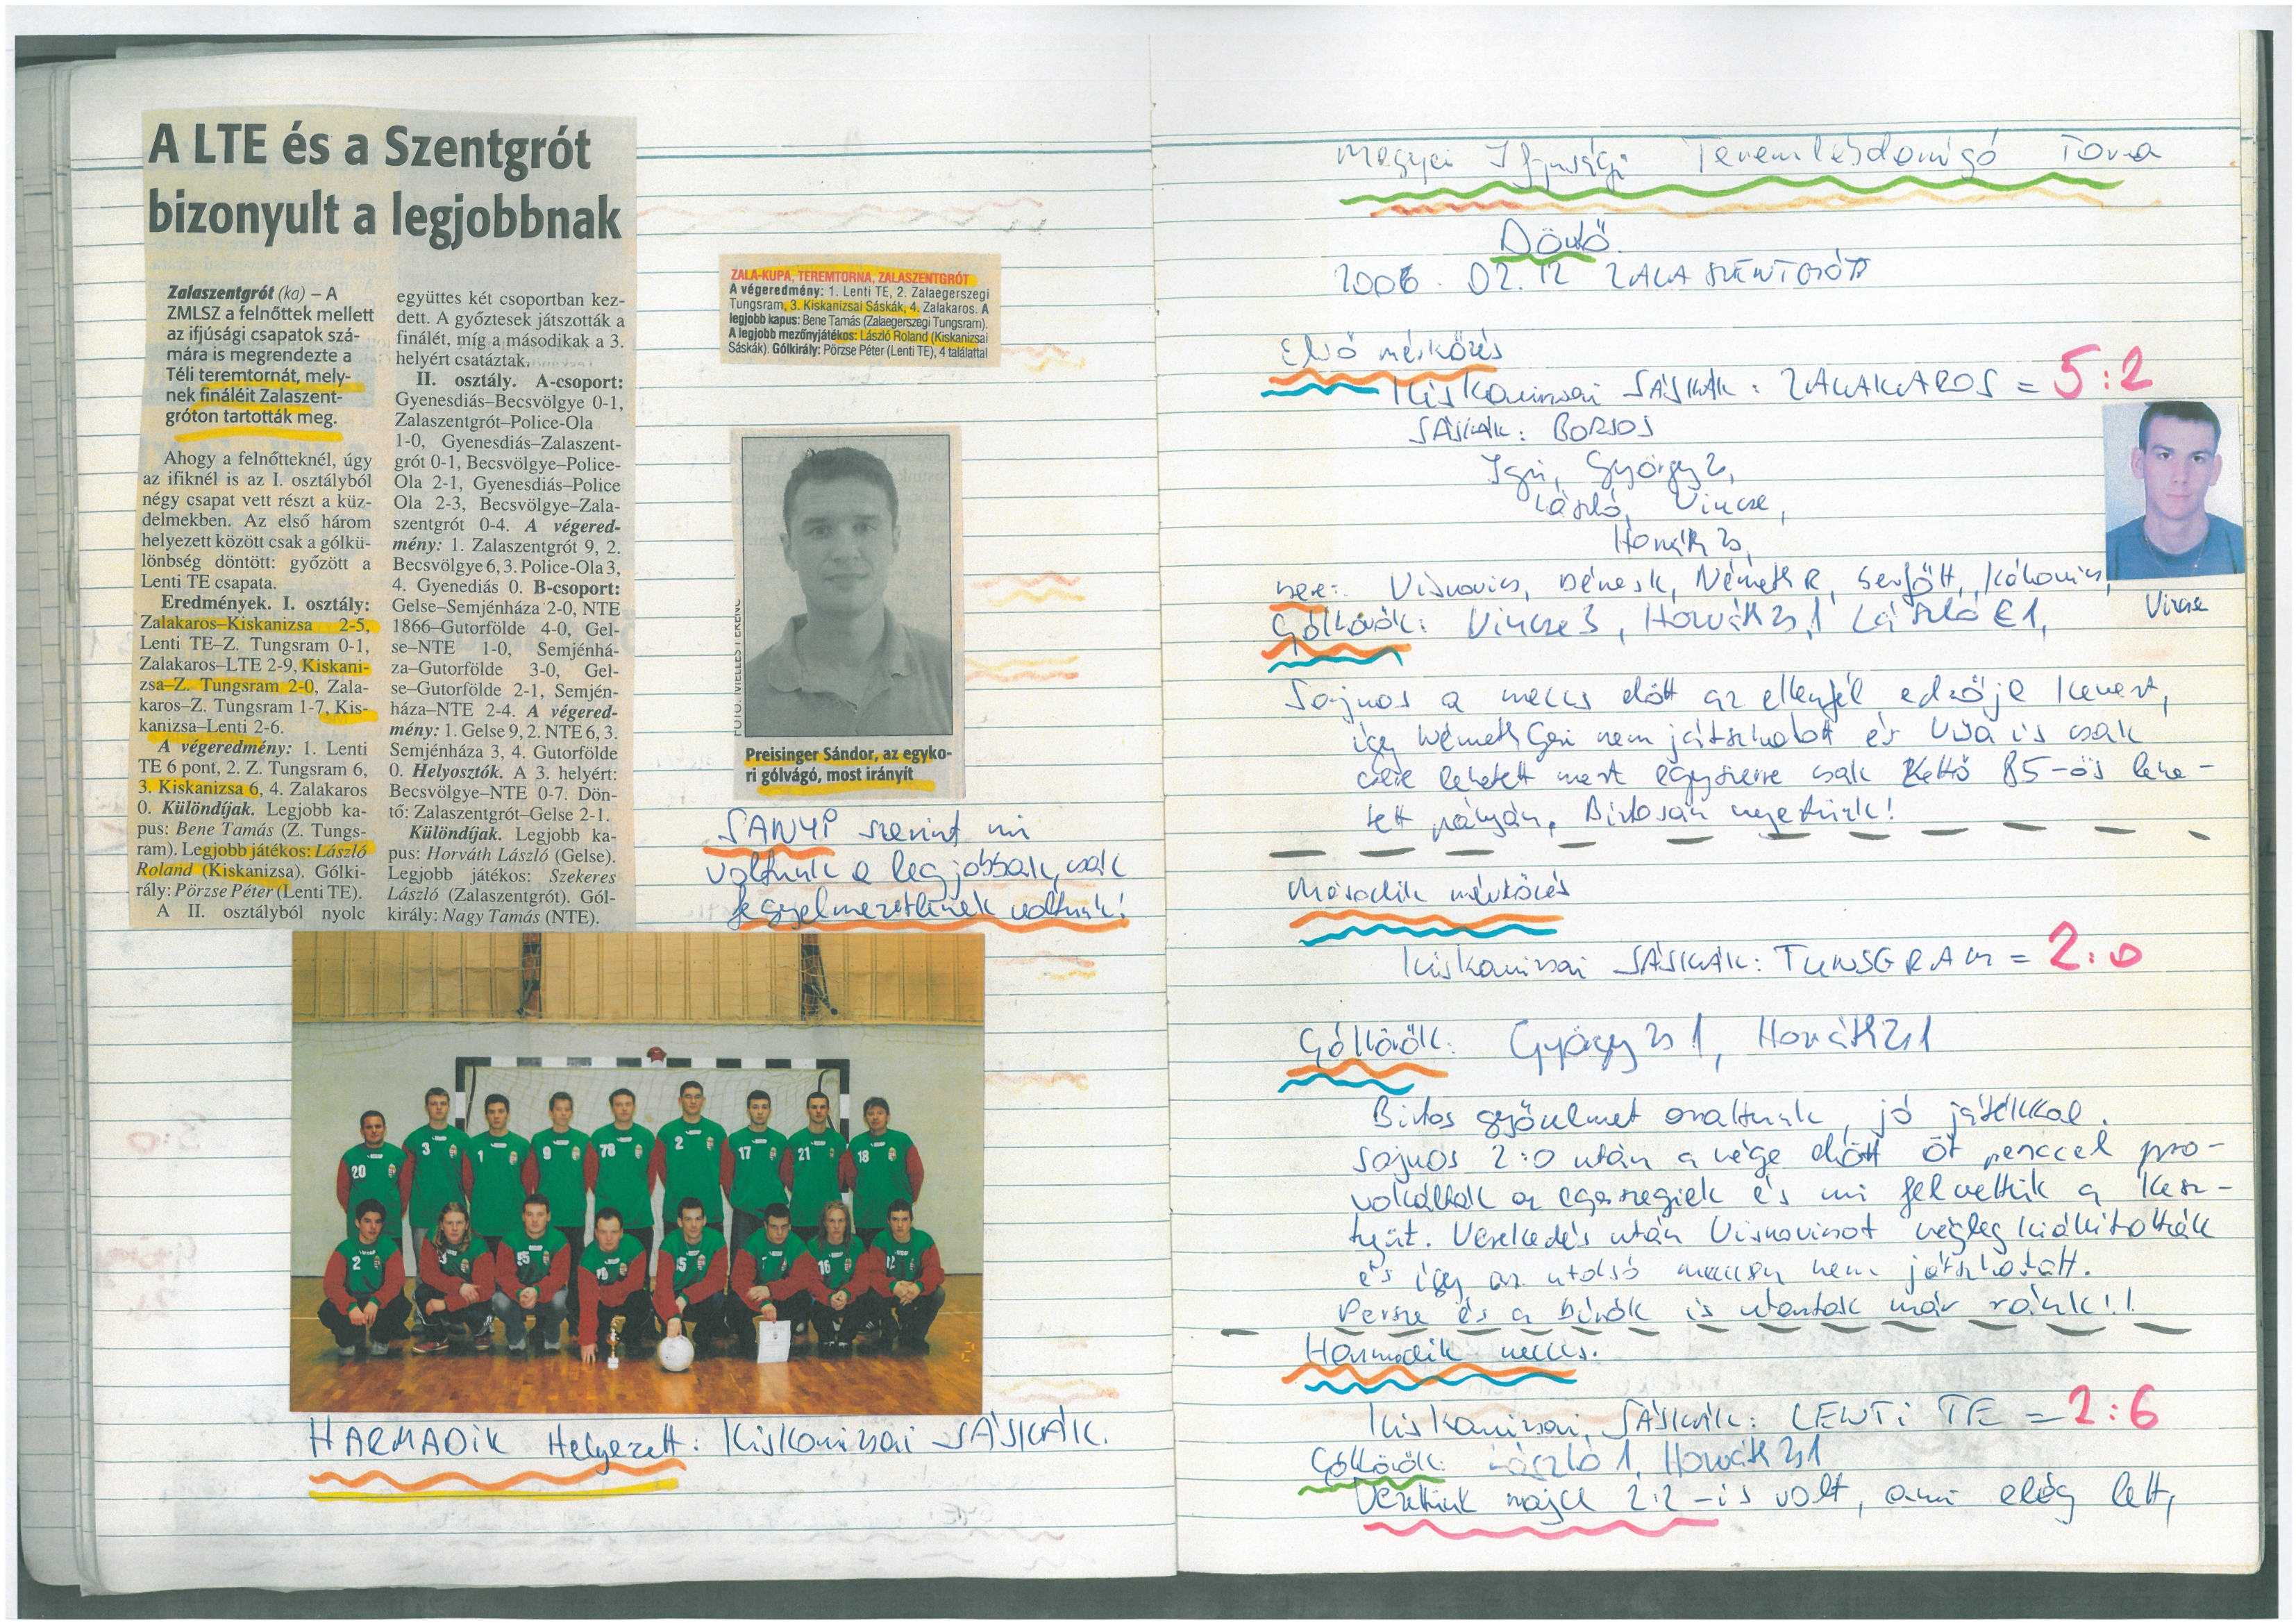 A LTE és a Szentgrót
bizonyult a legjobbnak
Zalaszentgrót (ka) – A
ZMLSZ a felnőttek mellett
az ifjúsági csapatok szá-
mára is megrendezte a
Téli teremtornát, mely-
nek fináléit Zalaszent-
gróton tartották meg.
Ahogy a felnőtteknél, úgy
az ifiknél is az I. osztályból
négy csapat vett részt a küz-
delmekben. Az első három
helyezett között csak a gólkü-
lönbség döntött: győzött a
Lenti TE csapata.
Eredmények. I. osztály:
Zalakaros–Kiskanizsa 2-5,
Lenti TE–Z. Tungsram 0-1,
Zalakaros–LTE 2-9, Kiskani-
zsa–Z. Tungsram 2-0, Zala-
karos–Z. Tungsram 1-7, Kis-
kanizsa–Lenti 2-6.
A végeredmény: 1. Lenti
TE 6 pont, 2. Z. Tungsram 6,
3. Kiskanizsa 6, 4. Zalakaros
0. Különdíjak. Legjobb ka-
pus: Bene Tamás (Z. Tungs-
ram). Legjobb játékos: László
Roland (Kiskanizsa). Gólki-
rály: Pörzse Péter (Lenti TE).
A II. osztályból nyolc
együttes két csoportban kez-
dett. A győztesek játszották a
finálét, míg a másodikak a 3.
helyért csatáztak.
II. osztály. A-csoport:
Gyenesdiás–Becsvölgye 0-1,
Zalaszentgrót–Police-Ola
1-0, Gyenesdiás–Zalaszent-
grót 0-1, Becsvölgye–Police-
Ola 2-1, Gyenesdiás–Police
Ola 2-3, Becsvölgye–Zala-
szentgrót 0-4. A végered-
mény: 1. Zalaszentgrót 9, 2.
Becsvölgye 6, 3. Police-Ola 3,
4. Gyenediás 0. B-csoport:
Gelse–Semjénháza 2-0, NTE
1866–Gutorfölde 4-0, Gel-
se–NTE 1-0, Semjénhá-
za–Gutorfölde 3-0, Gel-
se–Gutorfölde 2-1, Semjén-
háza–NTE 2-4. A végered-
mény: 1. Gelse 9, 2. NTE 6, 3.
Semjénháza 3, 4. Gutorfölde
0. Helyosztók. A 3. helyért:
Becsvölgye–NTE 0-7. Dön-
tő: Zalaszentgrót–Gelse 2-1.
Különdíjak. Legjobb ka-
pus: Horváth László (Gelse).
Legjobb játékos: Szekeres
László (Zalaszentgrót). Gól-
király: Nagy Tamás (NTE).
ZALA-KUPA, TEREMTORNA, ZALASZENTGRÓT
A végeredmény: 1. Lenti TE, 2. Zalaegerszegi
Tungsram, 3. Kiskanizsai Sáskák, 4. Zalakaros. A
legjobb kapus: Bene Tamás (Zalaegerszegi Tungsram).
A legjobb mezőnyjátékos: László Roland (Kiskanizsai
Sáskák). Gólkirály: Pörzse Péter (Lenti TE), 4 találattal
Preisinger Sándor, az egyko-
ri gólvágó, most irányít
SANYI szerint mi
voltunk a legjobbak, csak
fegyelmezetlenek voltunk!
20
3
1
9
78
2
17
21
18
2
16
12
HARMADIK Helyezett: Kiskanizsai SÁSKÁK.
Megyei Ifjúsági Teremlabdarúgó Torna
Döntő.
2006. 02. 12 ZALASZENTGRÓT
Első mérkőzés
Kiskanizsai SÁSKÁK: ZALAKAROS = 5:2
SÁSKÁK: BORSOS
György Zs,
László, Vincze,
Horváth Zs,
csere: Visnovics, Dénes K, Németh R,
Vincze
Góllövők: Vincze 3, Horváth Zs 1, László 1,
Sajnos a meccs előtt az ellenfél edzője kevert,
így Németh Geri nem játszhatott és Visa is csak
csere lehetett mert egyszerre csak kettő 85-ös lehe-
tett pályán. Biztosan nyertünk!
Második mérkőzés
Kiskanizsai SÁSKÁK: TUNSGRAM = 2:0
Góllövők: György Zs 1, Horváth Zs 1
Biztos győzelmet arattunk, jó játékkal.
Sajnos 2:0 után a vége előtt öt perccel pro-
vokáltak az egerszegiek és mi felvettük a kesz-
tyűt. Verekedés után Visnovicsot végleg kiállították
és így az utolsó meccsen nem játszhatott.
Persze és a bírók is utaztak már ránk!!
Harmadik meccs.
Kiskanizsai SÁSKÁK: LENTI TE = 2:6
Góllövők: László 1, Horváth Zs 1
Vezettünk majd 2:2-is volt, ami elég lett,